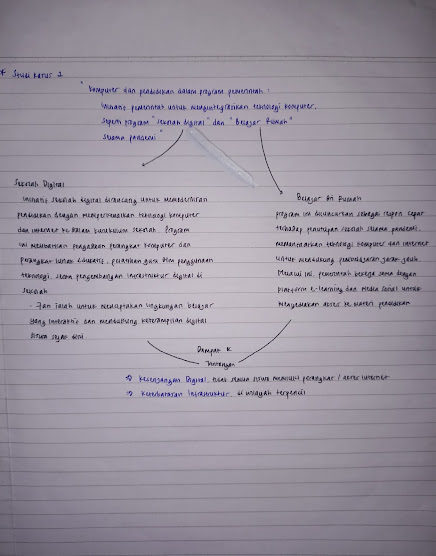 * Studi Kasus 2
"Komputer dan pendidikan dalam program pemerintah :
Inisiatif pemerintah untuk mengintegrasikan teknologi komputer,
seperti program "sekolah digital" dan "Belajar Rumah"
selama pandemi"
Sekolah Digital
Inisiatif sekolah digital dirancang untuk memodernkan
pendidikan dengan memperkenalkan teknologi komputer
dan internet ke dalam kurikulum sekolah. Program
ini melibatkan pengadaan perangkat komputer dan
perangkat lunak edukatif, pelatihan guru dlm penggunaan
teknologi, serta pengembangan infrastruktur digital di
sekolah
- Tuj ialah untuk menciptakan lingkungan belajar
yang interaktif dan mendukung keterampilan digital
siswa sejak dini
Belajar dri Rumah
program ini diluncurkan sebagai respon cepat
terhadap penutupan sekolah selama pandemi.
memanfaatkan teknologi komputer dan internet
untuk mendukung pembelajaran jarak jauh.
Melalui ini, pemerintah bekerja sama dengan
platform e-learning dan media sosial untuk
menyediakan akses ke materi pendidikan
Dampak &
Tantangan
⇒ Kesenjangan Digital, tidak semua siswa memiliki perangkat / akses internet
⇒ Keterbatasan Infrastruktur, di wilayah terpencil